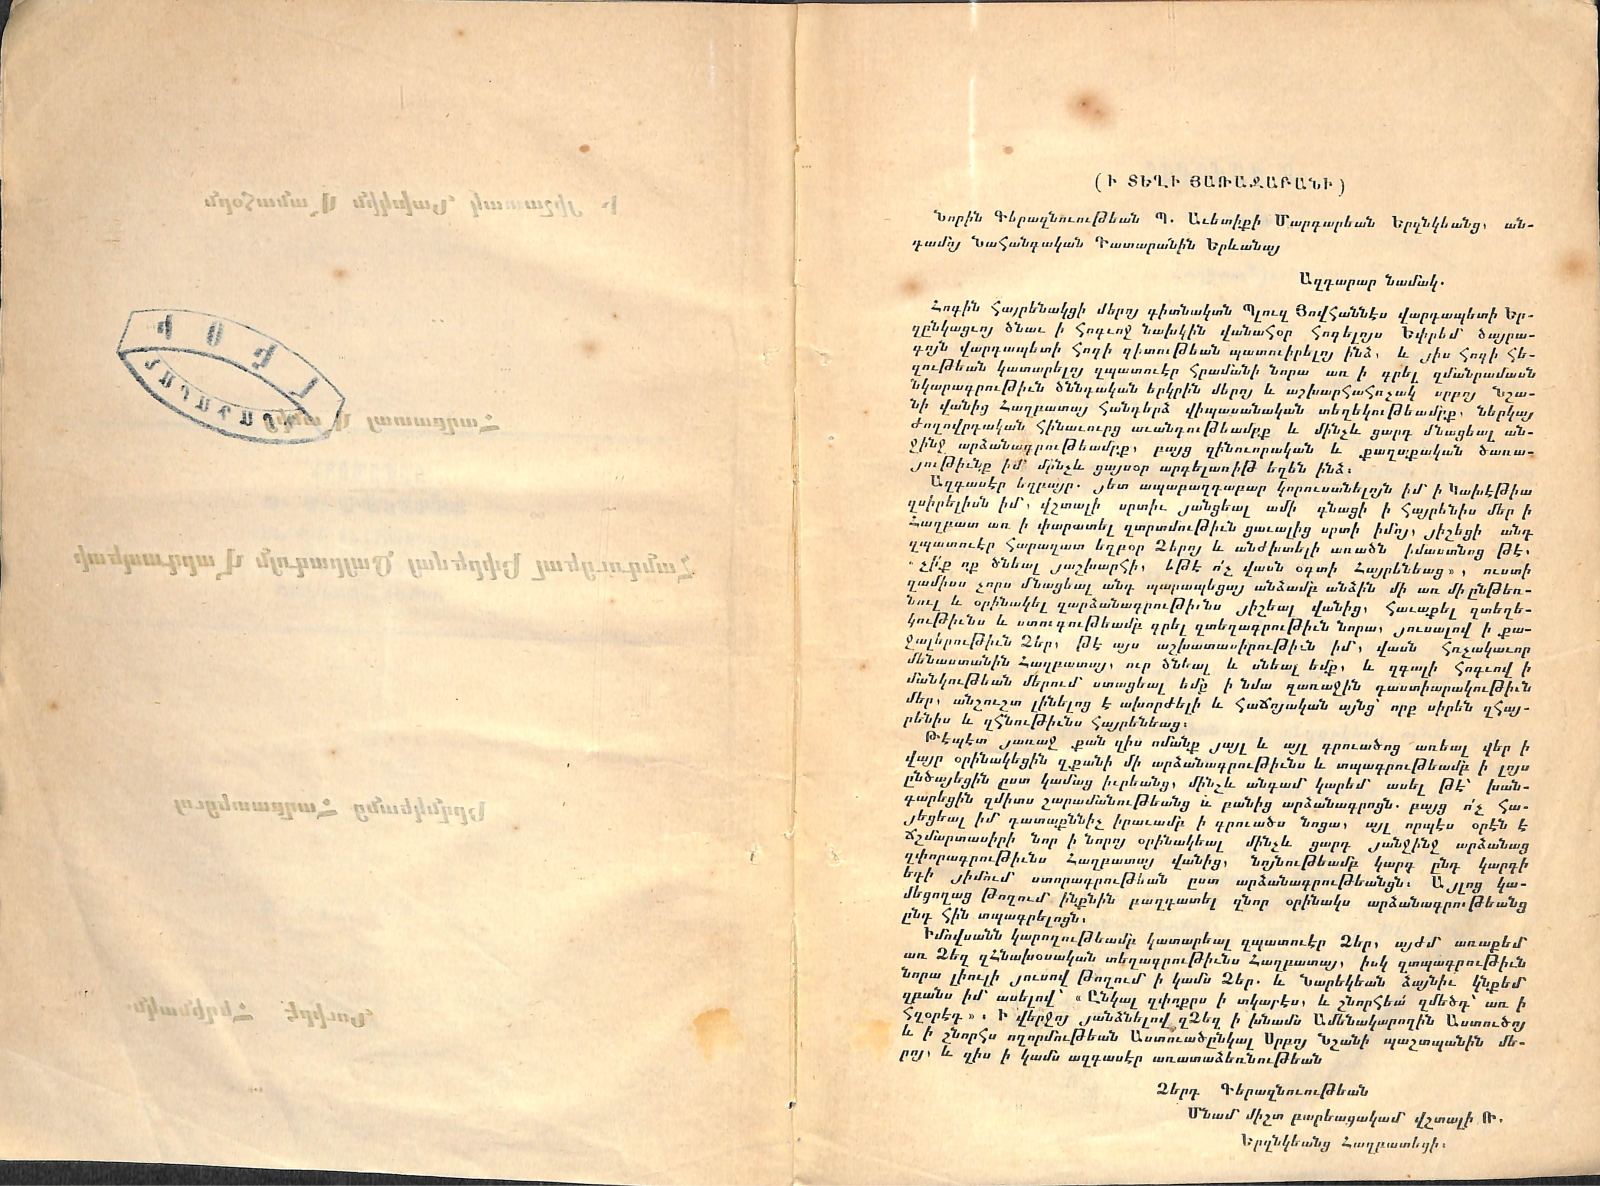 (Ի ՏԵՂԻ ՅԱՌԱՋԱԲԱՆԻ)
Նորին Գերազնուութեան Պ. Աւետիքի Մարգարեան Երզնկեանց, ան-
դամոյ Նահանգական Դատարանին Երևանայ
Ազդարար նամակ.
Հոգին Հայրենակցի մերոյ գիտնականն Պլուզ Յովհաննէս վարդապետի Եր-
զընկացւոյ ծնաւ ի հոգւոջ նախկին վանահօր հոգելոյս Եփրեմ ծայրա-
գոյն վարդապետի հոգի գիտութեան պատուիրելոյ ինձ, և յիս հոգի հե-
զութեան կատարելոյ զպատուէր հրամանի նորա առ ի գրել զմանրամասն
նկարագրութիւն ծննդական երկրին մերոյ և աշխարհահռչակ սրբոյ Նշա-
նի վանից Հաղբատայ հանդերձ վիպասանական տեղեկութեամբք, ներկայ
ժողովրդական հինաւուրց աւանդութեամբք և մինչև ցարդ մնացեալ ան-
ջինջ արձանագրութեամբք, բայց զինուորական և քաղաքական ծառա-
յութիւնք իմ մինչև ցայսօր արգելառիթ եղեն ինձ։
Ազգասէր եղբայր. յետ ապաբաղդաբար կորուսանելոյն իմ ի Կախէթիա
զսիրելիսն իմ, վշտալի սրտիւ յանցեալ ամի գնացի ի հայրենիս մեր ի
Հաղբատ առ ի փարատել զտրտմութիւն ցաւալից սրտի իմոյ, յիշեցի անդ
զպատուէր հարազատ եղբօր Ձերոյ և անժխտելի առածն իմաստնոց թէ,
« չիք ոք ծնեալ յաշխարհի, եթէ ո՛չ վասն օգտի հայրենեաց», ուստի
զամիսս չորս մնացեալ անդ պարապեցայ անձամբ անձին մի առ մի ընթեռ-
նուլ և օրինակել զարձանագրութիւնս յիշեալ վանից, հաւաքել զտեղե-
կութիւնս և ստուգութեամբ գրել զտեղագրութիւն նորա, յուսալով ի քա-
ջալերութիւն Ձեր, թէ այս աշխատասիրութիւն իմ, վասն հռչակաւոր
մենաստանին Հաղբատայ, ուր ծնեալ և սնեալ եմք, և զգալի հոգւով ի
մանկութեան մերում ստացեալ եմք ի նմա զառաջին դաստիարակութիւն
մեր, անշուշտ լինելոց է ախորժելի և հաճոյական այնց՝ որք սիրեն զհայ-
րենիս և զհնութիւնս հայրենեաց։
Թէպէտ յառաջ քան զիս ոմանք յայլ և այլ գրուածոց առեալ վեր ի
վայր օրինակեցին զքանի մի արձանագրութիւնս և տպագրութեամբ ի լոյս
ընծայեցին ըստ կամաց իւրեանց, մինչև անգամ կարեմ ասել թէ՝ խան-
գարեցին զմիտս շարամանութեանց և բանից արձանագրոցն. բայց ո՛չ հա-
յեցեալ իմ դատաքննիչ իրաւամբ ի գրուածս նոցա, այլ որպէս օրէն է
ճշմարտասիրի նոր ի նորոյ օրինակեալ մինչև ցարդ յանջինջ արձանաց
զփորագրութիւնս Հաղբատայ վանից, նոյնութեամբ կարգ ընդ կարգի
եդի յիմում ստորագրութեան ըստ արձանագրութեանցն։ Այլոց կա-
մեցողաց թողում ինքնին բաղդատել զնոր օրինակս արձանագրութեանց
ընդ հին տպագրելոցն.
Իմովսանն կարողութեամբ կատարեալ զպատուէր Ձեր, այժմ առաքեմ
առ Ձեզ զհնախօսական տեղագրութիւնս Հաղբատայ, իսկ զտպագրութիւն
նորա լիուլի յուսով թողում ի կամս Ձեր. և Նարեկեան ձայնիւ կնքեմ
զբանս իմ ասելով՝ «Ընկալ զփոքրս ի տկարէս, և շնորհեա՛ զմեծդ՝ առ ի
հզօրէդ»։ Ի վերջոյ յանձնելով զՁեզ ի խնամս Ամենակարողին Աստուծոյ
և ի շնորհս ողորմութեան Աստուածընկալ Սրբոյ Նշանի պաշտպանին մե-
րոյ, և զիս ի կամս ազգասէր առատաձեռնութեան
Ձերդ Գերազնուութեան
Մնամ միշտ բարեացակամ վշտալի Ռ.
Երզնկեանց Հաղբատեցի։